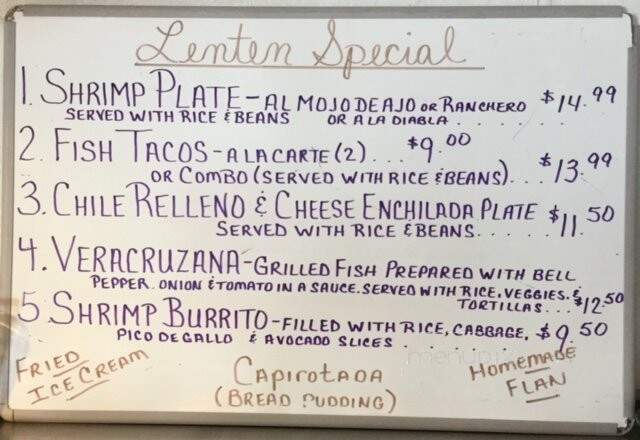 Lenten Special
1. SHRIMP PLATE - AL MOJO DE AJO OR RANCHERO $14.99
SERVED WITH RICE & BEANS OR A LA DIABLA . . . . . . . .
2. FISH TACOS - A LA CARTE (2) . . . $9.00
OR COMBO (SERVED WITH RICE & BEANS) . . . $13.99
3. CHILE RELLENO & CHEESE ENCHILADA PLATE $11.50
SERVED WITH RICE & BEANS . . . . .
4. VERACRUZANA - GRILLED FISH PREPARED WITH BELL
PEPPER. ONION & TOMATO IN A SAUCE. SERVED WITH RICE, VEGGIES. &
TORTILLAS . . . $12.50
5. SHRIMP BURRITO - FILLED WITH RICE, CABBAGE, $9.50
PICO DE GALLO & AVOCADO SLICES . . . . . . . .
FRIED
ICE CREAM
CAPIROTADA
(BREAD PUDDING)
HOMEMADE
FLAN